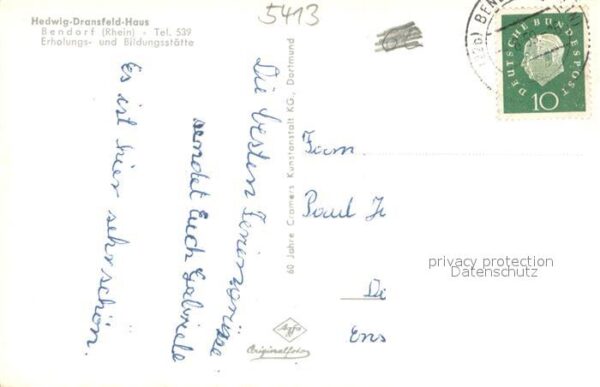 Hedwig-Dransfeld-Haus
Bendorf (Rhein) - Tel. 539
Erholungs- und Bildungsstätte
5413
DEUTSCHE BUNDESPOST
10
Die besten Feriengrüße
sendet Euch Gabriele
Es ist hier sehr schön.
60 Jahre Cramers Kunstanstalt KG., Dortmund
Fam.
Paul
privacy protection
Datenschutz
Agfa
Originalfoto